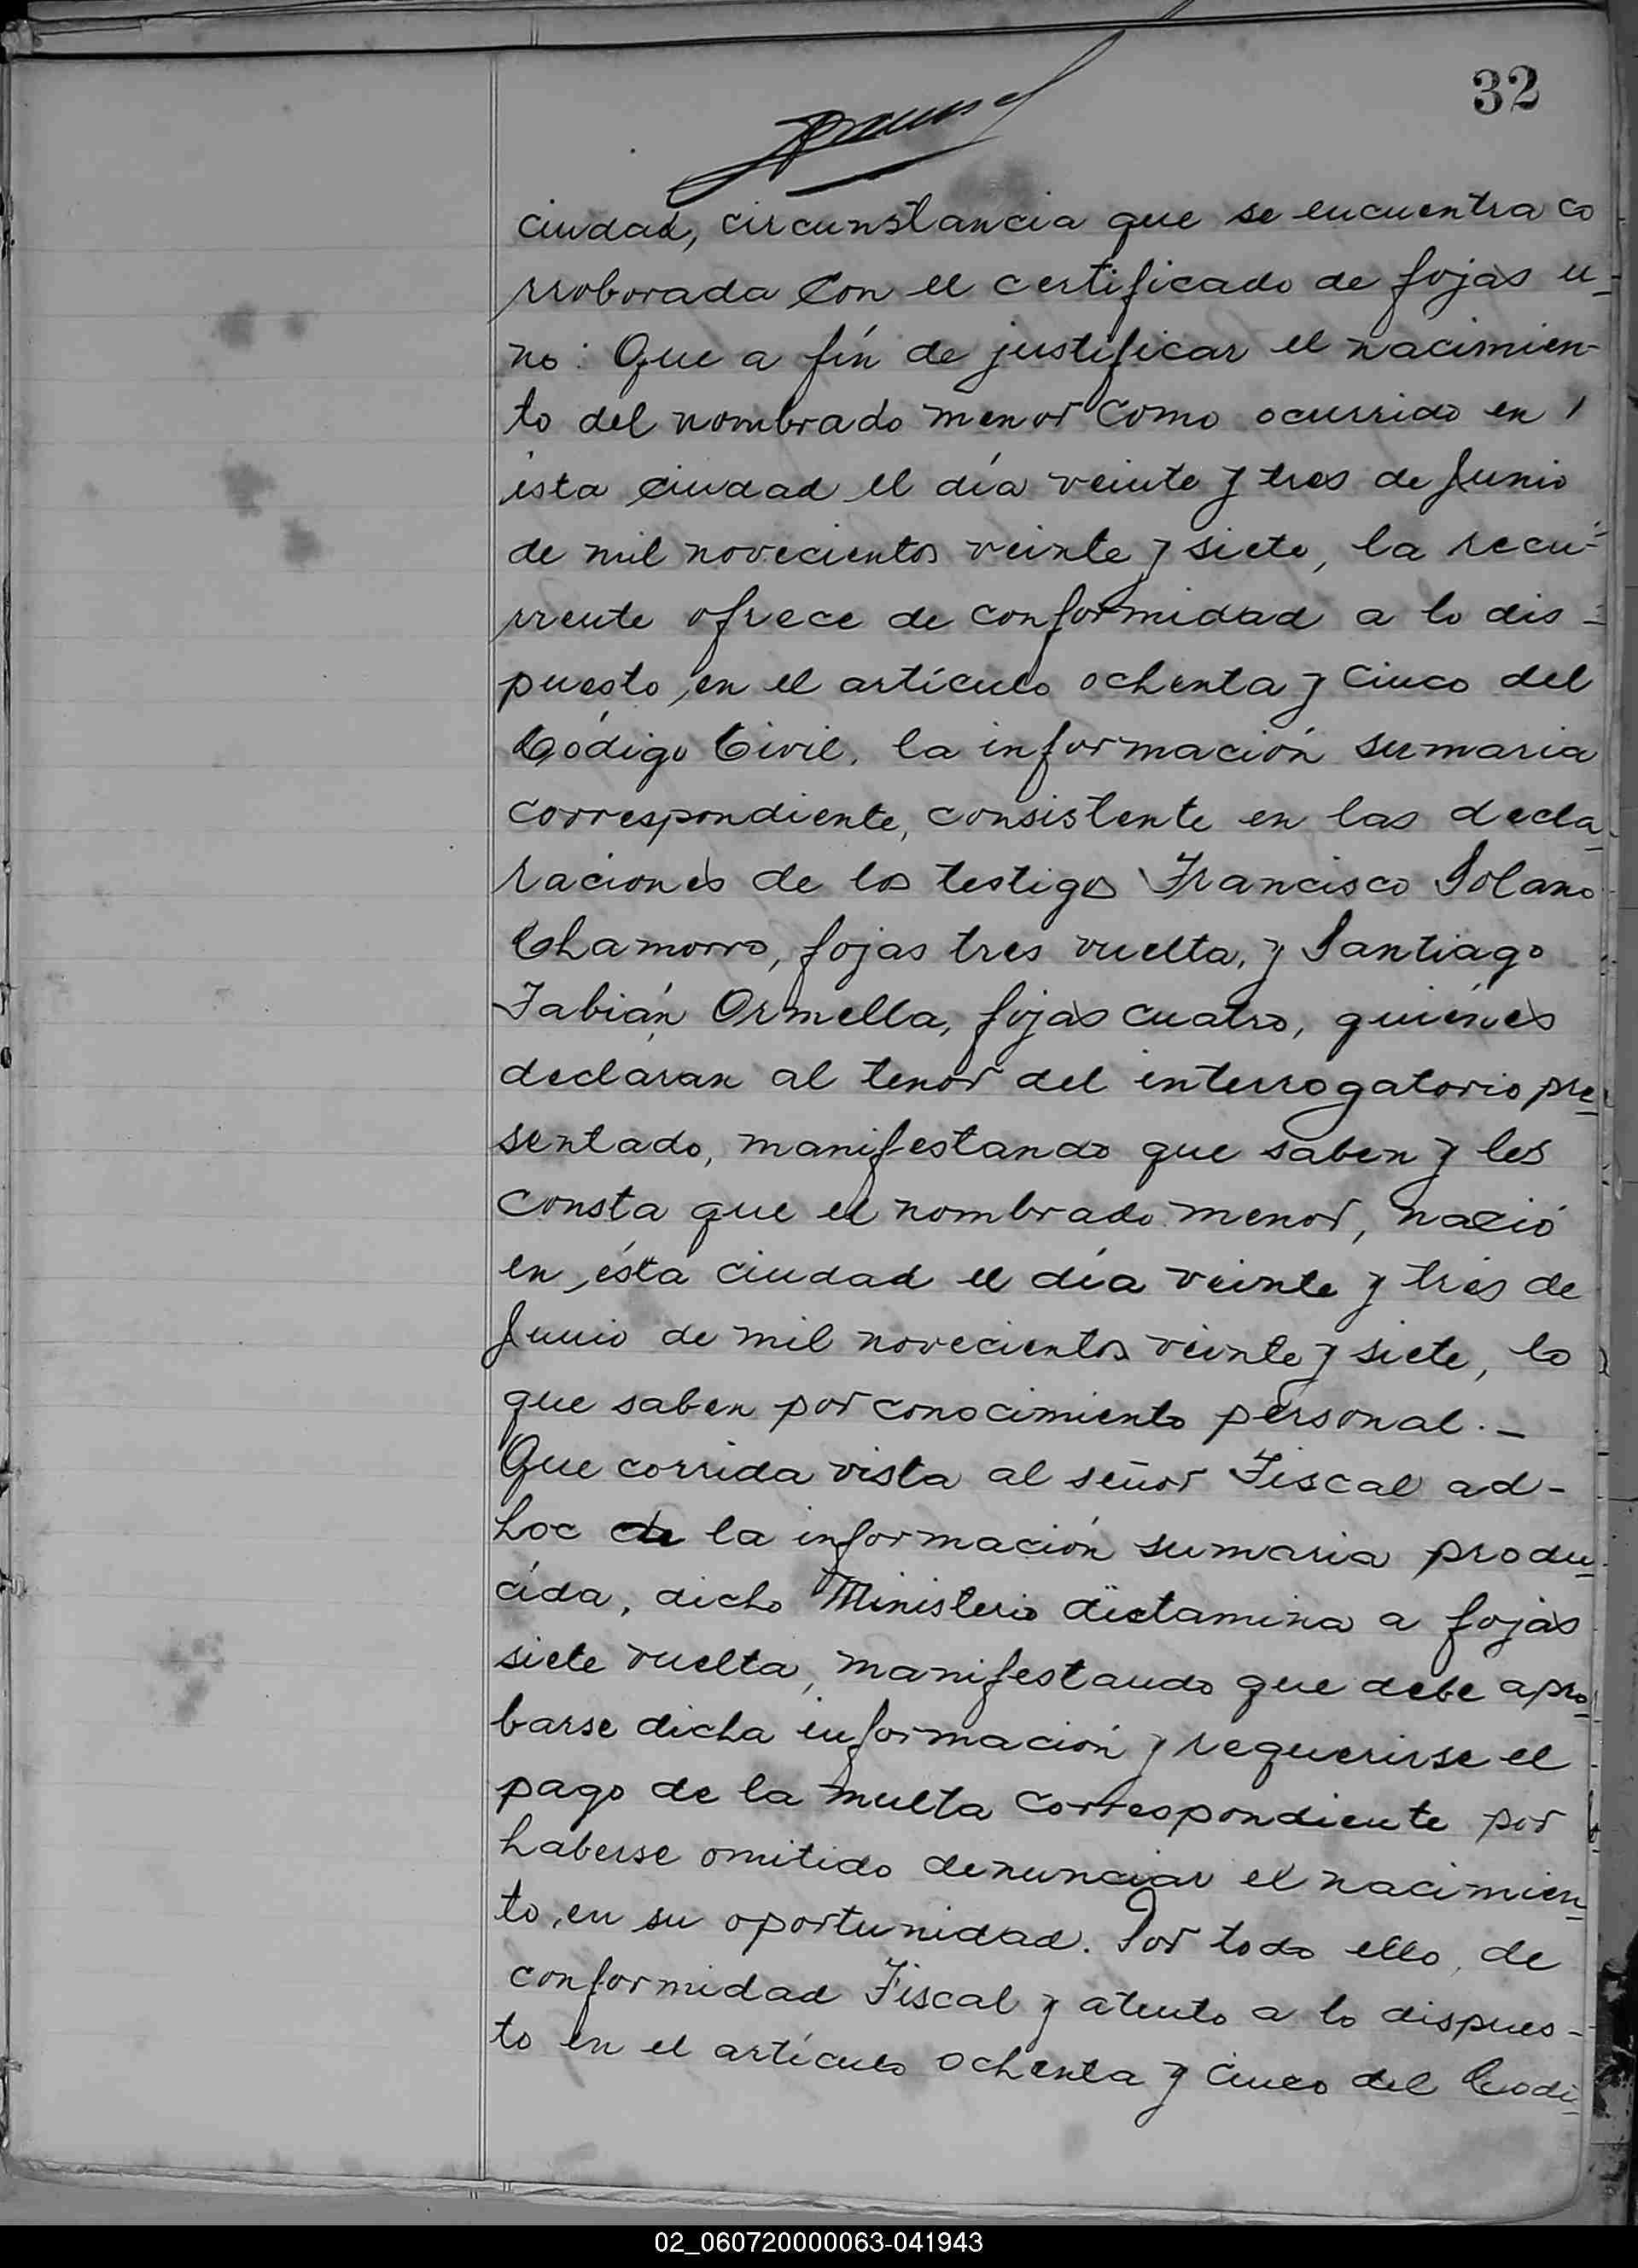 32
ciudad, circunstancia que se encuentra co
rroborada con el certificado de fojas u-
no: Que a fín de justificar el nacimien-
to del nombrado menor como ocurrido en
ésta ciudad el día veinte y tres de Junio
de mil novecientos veinte y siete, la recu-
rrente ofrece de conformidad a lo dis-
puesto, en el artículo ochenta y cinco del
Código Civil, la información sumaria
correspondiente, consistente en las decla-
raciones de los testigos Francisco Solano
Chamorro, fojas tres vuelta, y Santiago
Fabián Ormella, fojas cuatro, quiénes
declaran al tenor del interrogatorio pre-
sentado, manifestando que saben y les
consta que el nombrado menor, nació
en ésta ciudad el día veinte y tres de
Junio de mil novecientos veinte y siete, lo
que saben por conocimiento personal.-
Que corrida vista al señor Fiscal ad-
hoc de la información sumaria produ-
cida, dicho Ministerio dictamina a fojas
siete vuelta, manifestando que debe apro-
barse dicha información y requerirse el
pago de la multa correspondiente por
haberse omitido denunciar el nacimien-
to, en su oportunidad. Por todo ello, de
conformidad Fiscal y atento a lo dispues-
to en el artículo ochenta y cinco del Codi-
02_060720000063-041943